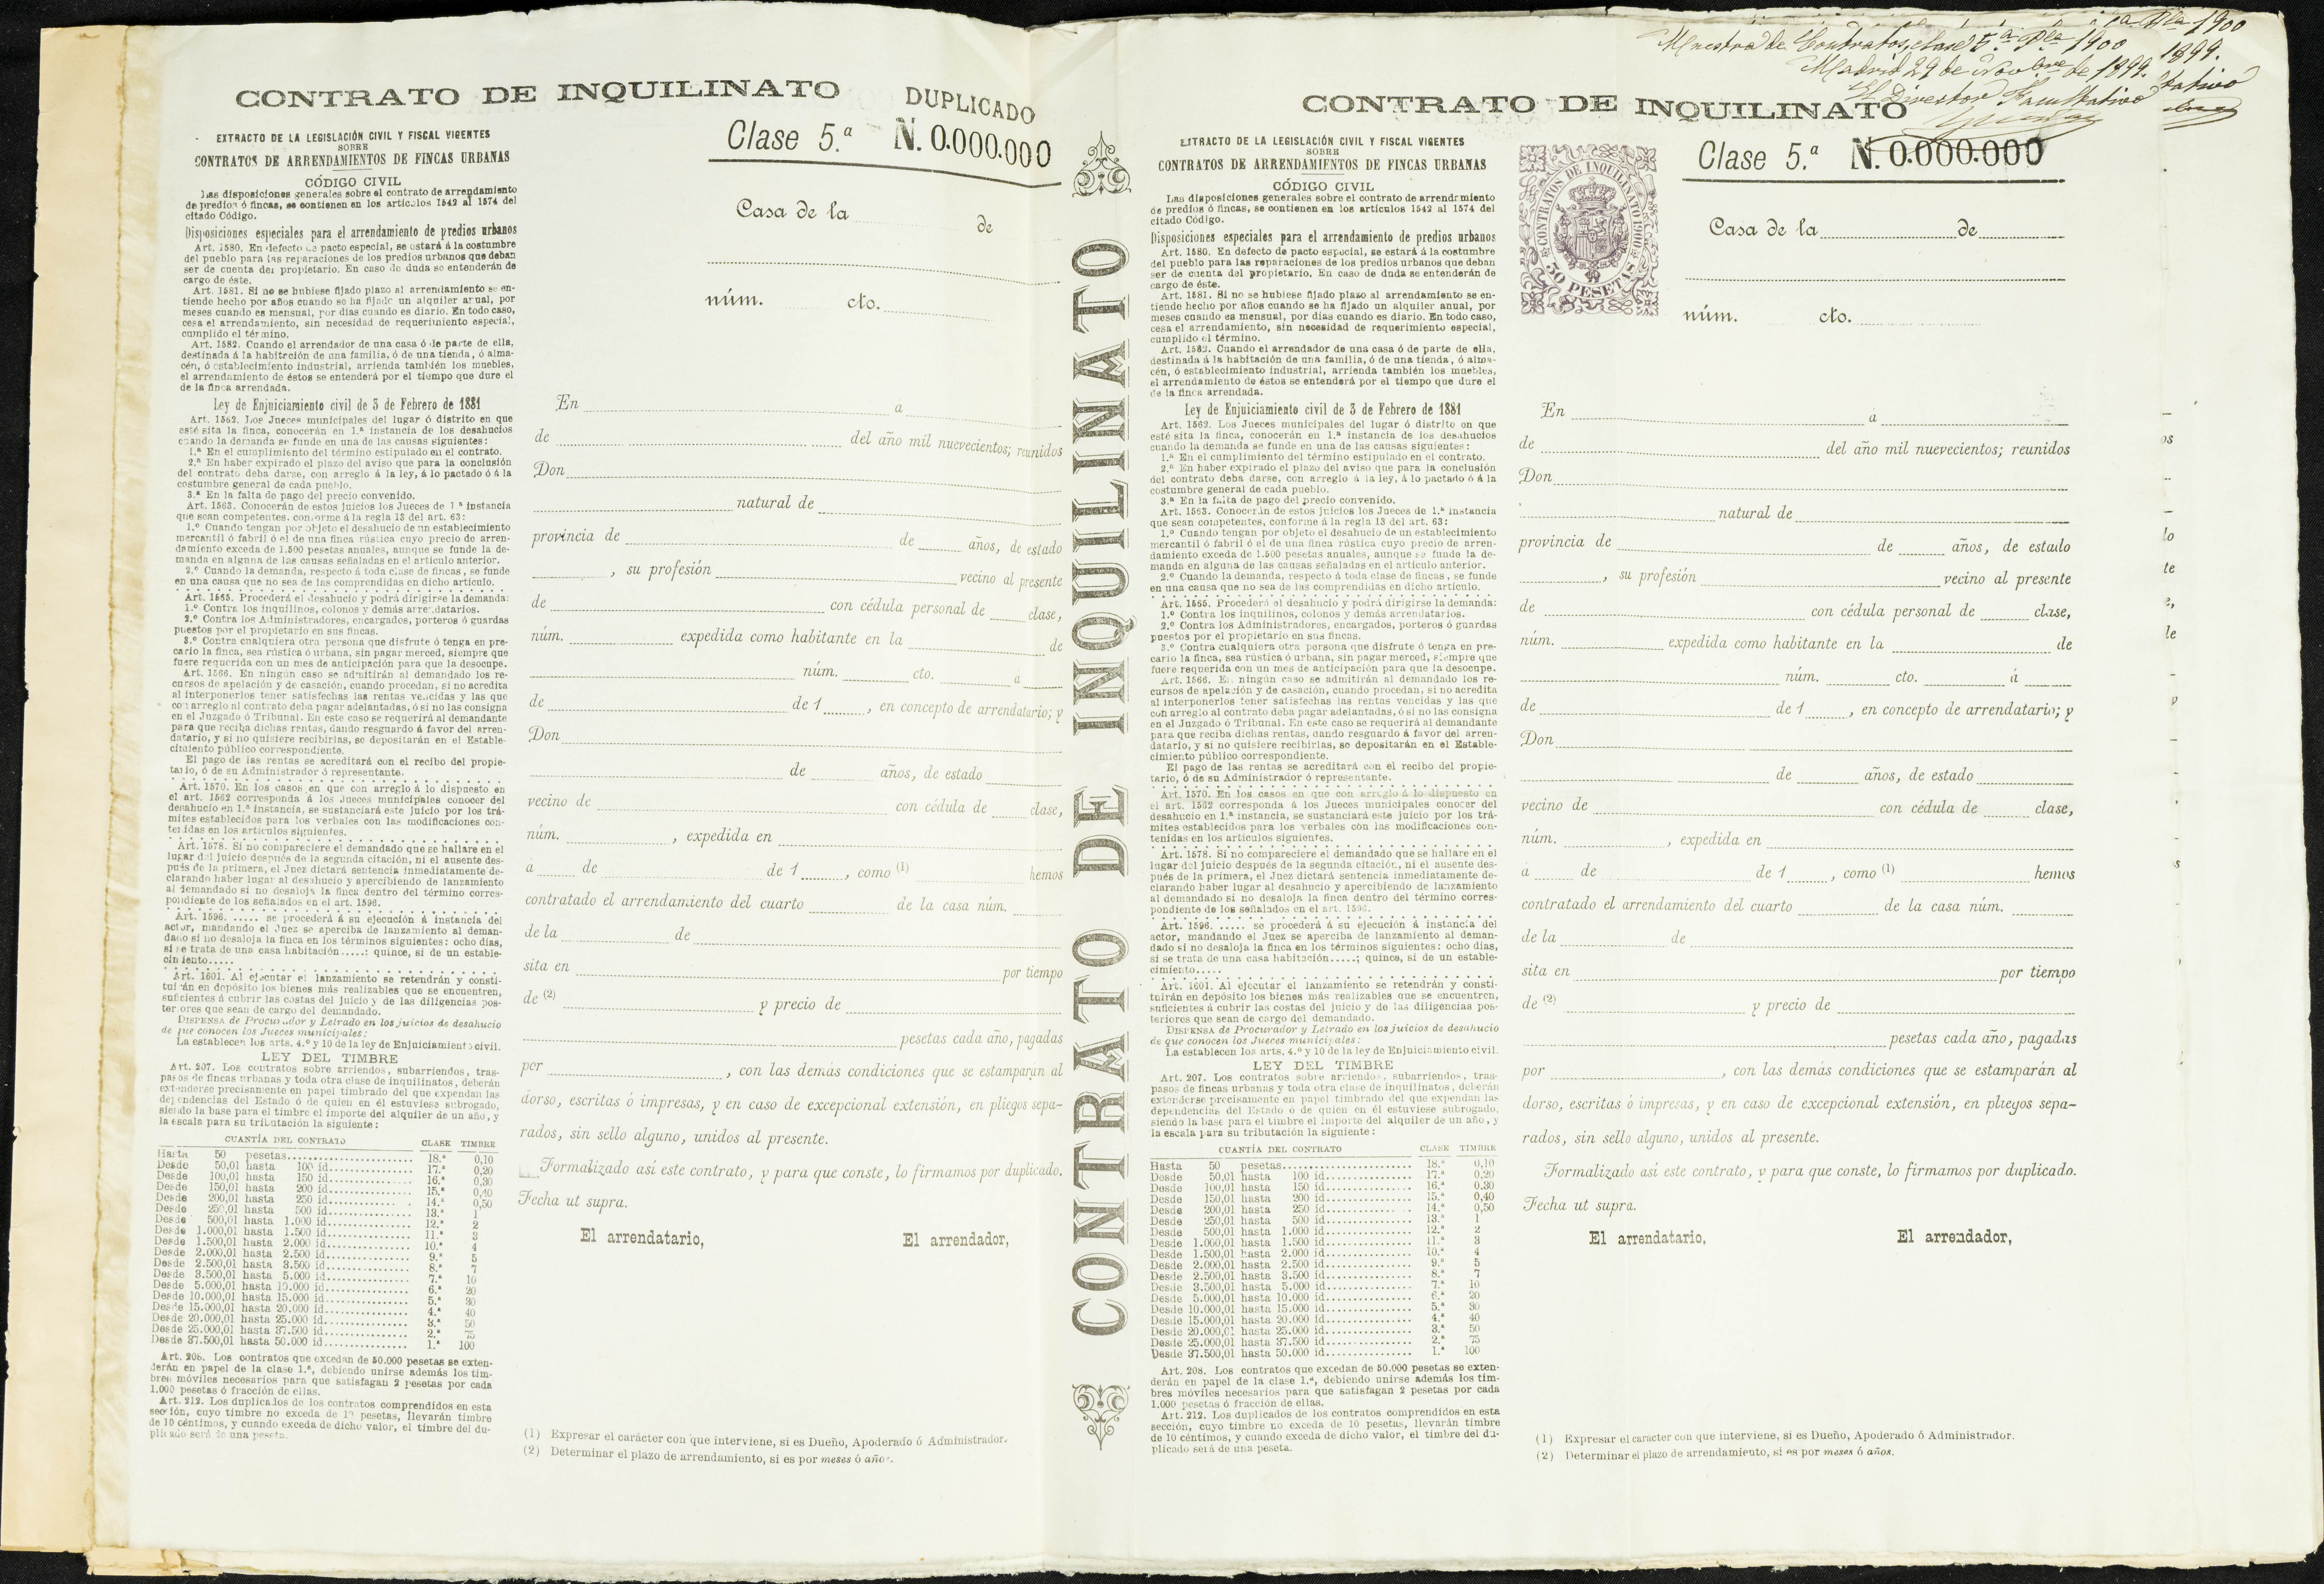 CONTRATO DE INQUILINATO
DUPLICADO
Clase 5.ª N. 0.000.000
EXTRACTO DE LA LEGISLACIÓN CIVIL Y FISCAL VIGENTES
SOBRE
CONTRATOS DE ARRENDAMIENTOS DE FINCAS URBANAS
CÓDIGO CIVIL
Las disposiciones generales sobre el contrato de arrendamiento
de predios ó fincas, se contienen en los artículos 1542 al 1574 del
citado Código.
Disposiciones especiales para el arrendamiento de predios urbanos
Art. 1580. En defecto de pacto especial, se estará á la costumbre
del pueblo para las reparaciones de los predios urbanos que deban
ser de cuenta del propietario. En caso de duda se entenderán de
cargo de éste.
Art. 1581. Si no se hubiese fijado plazo al arrendamiento se en-
tiende hecho por años cuando se ha fijado un alquiler anual, por
meses cuando es mensual, por días cuando es diario. En todo caso,
cesa el arrendamiento, sin necesidad de requerimiento especial,
cumplido el término.
Art. 1582. Cuando el arrendador de una casa ó de parte de ella,
destinada á la habitación de una familia, ó de una tienda, ó alma-
cén, ó establecimiento industrial, arrienda también los muebles,
el arrendamiento de éstos se entenderá por el tiempo que dure el
de la finca arrendada.
Ley de Enjuiciamiento civil de 3 de Febrero de 1881
Art. 1562. Los Jueces municipales del lugar ó distrito en que
esté sita la finca, conocerán en 1.ª instancia de los desahucios
cuando la demanda se funde en una de las causas siguientes:
1.ª En el cumplimiento del término estipulado en el contrato.
2.ª En haber expirado el plazo del aviso que para la conclusión
del contrato deba darse, con arreglo á la ley, á lo pactado ó á la
costumbre general de cada pueblo.
3.ª En la falta de pago del precio convenido.
Art. 1563. Conocerán de estos juicios los Jueces de 1.ª instancia
que sean competentes, conforme á la regla 13 del art. 63:
1.º Cuando tengan por objeto el desahucio de un establecimiento
mercantil ó fabril ó el de una finca rústica cuyo precio de arren-
damiento exceda de 1.500 pesetas anuales, aunque se funde la de-
manda en alguna de las causas señaladas en el artículo anterior.
2.º Cuando la demanda, respecto á toda clase de fincas, se funde
en una causa que no sea de las comprendidas en dicho artículo.
Art. 1565. Procederá el desahucio y podrá dirigirse la demanda:
1.º Contra los inquilinos, colonos y demás arrendatarios.
2.º Contra los Administradores, encargados, porteros ó guardas
puestos por el propietario en sus fincas.
3.º Contra cualquiera otra persona que disfrute ó tenga en pre-
cario la finca, sea rústica ó urbana, sin pagar merced, siempre que
fuere requerida con un mes de anticipación para que la desocupe.
Art. 1566. En ningún caso se admitirán al demandado los re-
cursos de apelación y de casación, cuando procedan, si no acredita
al interponerlos tener satisfechas las rentas vencidas y las que
con arreglo al contrato deba pagar adelantadas, ó si no las consigna
en el Juzgado ó Tribunal. En este caso se requerirá al demandante
para que reciba dichas rentas, dando resguardo á favor del arren-
datario, y si no quisiere recibirlas, se depositarán en el Estable-
cimiento público correspondiente.
El pago de las rentas se acreditará con el recibo del propie-
tario, ó de su Administrador ó representante.
Art. 1570. En los casos en que con arreglo á lo dispuesto en
el art. 1562 corresponda á los Jueces municipales conocer del
desahucio en 1.ª instancia, se sustanciará este juicio por los trá-
mites establecidos para los verbales con las modificaciones con-
tenidas en los artículos siguientes.
Art. 1578. Si no compareciere el demandado que se hallare en el
lugar del juicio después de la segunda citación, ni el ausente des-
pués de la primera, el Juez dictará sentencia inmediatamente de-
clarando haber lugar al desahucio y apercibiendo de lanzamiento
al demandado si no desaloja la finca dentro del término corres-
pondiente de los señalados en el art. 1596.
Art. 1596. ..... se procederá á su ejecución á instancia del
actor, mandando el Juez se aperciba de lanzamiento al deman-
dado si no desaloja la finca en los términos siguientes: ocho días,
si se trata de una casa habitación.....; quince, si de un estable-
cimiento.....
Art. 1601. Al ejecutar el lanzamiento se retendrán y consti-
tuirán en depósito los bienes más realizables que se encuentren,
suficientes á cubrir las costas del juicio y de las diligencias pos-
teriores que sean de cargo del demandado.
DISPENSA de Procurador y Letrado en los juicios de desahucio
de que conocen los Jueces municipales:
La establecen los arts. 4.º y 10 de la ley de Enjuiciamiento civil.
LEY DEL TIMBRE
Art. 207. Los contratos sobre arriendos, subarriendos, tras-
pasos de fincas urbanas y toda otra clase de inquilinatos, deberán
extenderse precisamente en papel timbrado del que expendan las
dependencias del Estado ó de quien en él estuviese subrogado,
siendo la base para el timbre el importe del alquiler de un año, y
la escala para su tributación la siguiente:
CUANTÍA DEL CONTRATO CLASE TIMBRE
Hasta 50 pesetas 18.ª 0,10
Desde 50,01 hasta 100 id. 17.ª 0,20
Desde 100,01 hasta 150 id. 16.ª 0,30
Desde 150,01 hasta 200 id. 15.ª 0,40
Desde 200,01 hasta 250 id. 14.ª 0,50
Desde 250,01 hasta 500 id. 13.ª 1
Desde 500,01 hasta 1.000 id. 12.ª 2
Desde 1.000,01 hasta 1.500 id. 11.ª 3
Desde 1.500,01 hasta 2.000 id. 10.ª 4
Desde 2.000,01 hasta 2.500 id. 9.ª 5
Desde 2.500,01 hasta 3.500 id. 8.ª 7
Desde 3.500,01 hasta 5.000 id. 7.ª 10
Desde 5.000,01 hasta 10.000 id. 6.ª 20
Desde 10.000,01 hasta 15.000 id. 5.ª 30
Desde 15.000,01 hasta 20.000 id. 4.ª 40
Desde 20.000,01 hasta 25.000 id. 3.ª 50
Desde 25.000,01 hasta 37.500 id. 2.ª 75
Desde 37.500,01 hasta 50.000 id. 1.ª 100
Art. 208. Los contratos que excedan de 50.000 pesetas se exten-
derán en papel de la clase 1.ª, debiendo unirse además los tim-
bres móviles necesarios para que satisfagan 2 pesetas por cada
1.000 pesetas ó fracción de ellas.
Art. 212. Los duplicados de los contratos comprendidos en esta
sección, cuyo timbre no exceda de 10 pesetas, llevarán timbre
de 10 céntimos, y cuando exceda de dicho valor, el timbre del du-
plicado será de una peseta.
Casa de la de
núm. cto.
En a
de del año mil nuevecientos; reunidos
Don
natural de
provincia de de años, de estado
, su profesión vecino al presente
de con cédula personal de clase,
núm. expedida como habitante en la de
núm. cto. á
de de 1 , en concepto de arrendatario; y
Don
de años, de estado
vecino de con cédula de clase,
núm. , expedida en
a de de 1 , como (1) hemos
contratado el arrendamiento del cuarto de la casa núm.
de la de
sita en por tiempo
de (2) y precio de
pesetas cada año, pagadas
por , con las demás condiciones que se estamparán al
dorso, escritas ó impresas, y en caso de excepcional extensión, en pliegos sepa-
rados, sin sello alguno, unidos al presente.
Formalizado así este contrato, y para que conste, lo firmamos por duplicado.
Fecha ut supra.
El arrendatario, El arrendador,
(1) Expresar el carácter con que interviene, si es Dueño, Apoderado ó Administrador.
(2) Determinar el plazo de arrendamiento, si es por meses ó años.
CONTRATO DE INQUILINATO
Muestra de Contratos, clase 5.ª Pla 1900
Madrid 29 de Novbre de 1899.
El Director Facultativo
1900
1899.
CONTRATO DE INQUILINATO
Clase 5.ª N. 0.000.000
CONTRATOS DE INQUILINATO 1900
50 PESETAS
EXTRACTO DE LA LEGISLACIÓN CIVIL Y FISCAL VIGENTES
SOBRE
CONTRATOS DE ARRENDAMIENTOS DE FINCAS URBANAS
CÓDIGO CIVIL
Las disposiciones generales sobre el contrato de arrendamiento
de predios ó fincas, se contienen en los artículos 1542 al 1574 del
citado Código.
Disposiciones especiales para el arrendamiento de predios urbanos
Art. 1580. En defecto de pacto especial, se estará á la costumbre
del pueblo para las reparaciones de los predios urbanos que deban
ser de cuenta del propietario. En caso de duda se entenderán de
cargo de éste.
Art. 1581. Si no se hubiese fijado plazo al arrendamiento se en-
tiende hecho por años cuando se ha fijado un alquiler anual, por
meses cuando es mensual, por días cuando es diario. En todo caso,
cesa el arrendamiento, sin necesidad de requerimiento especial,
cumplido el término.
Art. 1582. Cuando el arrendador de una casa ó de parte de ella,
destinada á la habitación de una familia, ó de una tienda, ó alma-
cén, ó establecimiento industrial, arrienda también los muebles,
el arrendamiento de éstos se entenderá por el tiempo que dure el
de la finca arrendada.
Ley de Enjuiciamiento civil de 3 de Febrero de 1881
Art. 1562. Los Jueces municipales del lugar ó distrito en que
esté sita la finca, conocerán en 1.ª instancia de los desahucios
cuando la demanda se funde en una de las causas siguientes:
1.ª En el cumplimiento del término estipulado en el contrato.
2.ª En haber expirado el plazo del aviso que para la conclusión
del contrato deba darse, con arreglo á la ley, á lo pactado ó á la
costumbre general de cada pueblo.
3.ª En la falta de pago del precio convenido.
Art. 1563. Conocerán de estos juicios los Jueces de 1.ª instancia
que sean competentes, conforme á la regla 13 del art. 63:
1.º Cuando tengan por objeto el desahucio de un establecimiento
mercantil ó fabril ó el de una finca rústica cuyo precio de arren-
damiento exceda de 1.500 pesetas anuales, aunque se funde la de-
manda en alguna de las causas señaladas en el artículo anterior.
2.º Cuando la demanda, respecto á toda clase de fincas, se funde
en una causa que no sea de las comprendidas en dicho artículo.
Art. 1565. Procederá el desahucio y podrá dirigirse la demanda:
1.º Contra los inquilinos, colonos y demás arrendatarios.
2.º Contra los Administradores, encargados, porteros ó guardas
puestos por el propietario en sus fincas.
3.º Contra cualquiera otra persona que disfrute ó tenga en pre-
cario la finca, sea rústica ó urbana, sin pagar merced, siempre que
fuere requerida con un mes de anticipación para que la desocupe.
Art. 1566. En ningún caso se admitirán al demandado los re-
cursos de apelación y de casación, cuando procedan, si no acredita
al interponerlos tener satisfechas las rentas vencidas y las que
con arreglo al contrato deba pagar adelantadas, ó si no las consigna
en el Juzgado ó Tribunal. En este caso se requerirá al demandante
para que reciba dichas rentas, dando resguardo á favor del arren-
datario, y si no quisiere recibirlas, se depositarán en el Estable-
cimiento público correspondiente.
El pago de las rentas se acreditará con el recibo del propie-
tario, ó de su Administrador ó representante.
Art. 1570. En los casos en que con arreglo á lo dispuesto en
el art. 1562 corresponda á los Jueces municipales conocer del
desahucio en 1.ª instancia, se sustanciará este juicio por los trá-
mites establecidos para los verbales con las modificaciones con-
tenidas en los artículos siguientes.
Art. 1578. Si no compareciere el demandado que se hallare en el
lugar del juicio después de la segunda citación, ni el ausente des-
pués de la primera, el Juez dictará sentencia inmediatamente de-
clarando haber lugar al desahucio y apercibiendo de lanzamiento
al demandado si no desaloja la finca dentro del término corres-
pondiente de los señalados en el art. 1596.
Art. 1596. ..... se procederá á su ejecución á instancia del
actor, mandando el Juez se aperciba de lanzamiento al deman-
dado si no desaloja la finca en los términos siguientes: ocho días,
si se trata de una casa habitación.....; quince, si de un estable-
cimiento.....
Art. 1601. Al ejecutar el lanzamiento se retendrán y consti-
tuirán en depósito los bienes más realizables que se encuentren,
suficientes á cubrir las costas del juicio y de las diligencias pos-
teriores que sean de cargo del demandado.
DISPENSA de Procurador y Letrado en los juicios de desahucio
de que conocen los Jueces municipales:
La establecen los arts. 4.º y 10 de la ley de Enjuiciamiento civil.
LEY DEL TIMBRE
Art. 207. Los contratos sobre arriendos, subarriendos, tras-
pasos de fincas urbanas y toda otra clase de inquilinatos, deberán
extenderse precisamente en papel timbrado del que expendan las
dependencias del Estado ó de quien en él estuviese subrogado,
siendo la base para el timbre el importe del alquiler de un año, y
la escala para su tributación la siguiente:
CUANTÍA DEL CONTRATO CLASE TIMBRE
Hasta 50 pesetas 18.ª 0,10
Desde 50,01 hasta 100 id. 17.ª 0,20
Desde 100,01 hasta 150 id. 16.ª 0,30
Desde 150,01 hasta 200 id. 15.ª 0,40
Desde 200,01 hasta 250 id. 14.ª 0,50
Desde 250,01 hasta 500 id. 13.ª 1
Desde 500,01 hasta 1.000 id. 12.ª 2
Desde 1.000,01 hasta 1.500 id. 11.ª 3
Desde 1.500,01 hasta 2.000 id. 10.ª 4
Desde 2.000,01 hasta 2.500 id. 9.ª 5
Desde 2.500,01 hasta 3.500 id. 8.ª 7
Desde 3.500,01 hasta 5.000 id. 7.ª 10
Desde 5.000,01 hasta 10.000 id. 6.ª 20
Desde 10.000,01 hasta 15.000 id. 5.ª 30
Desde 15.000,01 hasta 20.000 id. 4.ª 40
Desde 20.000,01 hasta 25.000 id. 3.ª 50
Desde 25.000,01 hasta 37.500 id. 2.ª 75
Desde 37.500,01 hasta 50.000 id. 1.ª 100
Art. 208. Los contratos que excedan de 50.000 pesetas se exten-
derán en papel de la clase 1.ª, debiendo unirse además los tim-
bres móviles necesarios para que satisfagan 2 pesetas por cada
1.000 pesetas ó fracción de ellas.
Art. 212. Los duplicados de los contratos comprendidos en esta
sección, cuyo timbre no exceda de 10 pesetas, llevarán timbre
de 10 céntimos, y cuando exceda de dicho valor, el timbre del du-
plicado será de una peseta.
Casa de la de
núm. cto.
En a
de del año mil nuevecientos; reunidos
Don
natural de
provincia de de años, de estado
, su profesión vecino al presente
de con cédula personal de clase,
núm. expedida como habitante en la de
núm. cto. á
de de 1 , en concepto de arrendatario; y
Don
de años, de estado
vecino de con cédula de clase,
núm. , expedida en
a de de 1 , como (1) hemos
contratado el arrendamiento del cuarto de la casa núm.
de la de
sita en por tiempo
de (2) y precio de
pesetas cada año, pagadas
por , con las demás condiciones que se estamparán al
dorso, escritas ó impresas, y en caso de excepcional extensión, en pliegos sepa-
rados, sin sello alguno, unidos al presente.
Formalizado así este contrato, y para que conste, lo firmamos por duplicado.
Fecha ut supra.
El arrendatario, El arrendador,
(1) Expresar el carácter con que interviene, si es Dueño, Apoderado ó Administrador.
(2) Determinar el plazo de arrendamiento, si es por meses ó años.